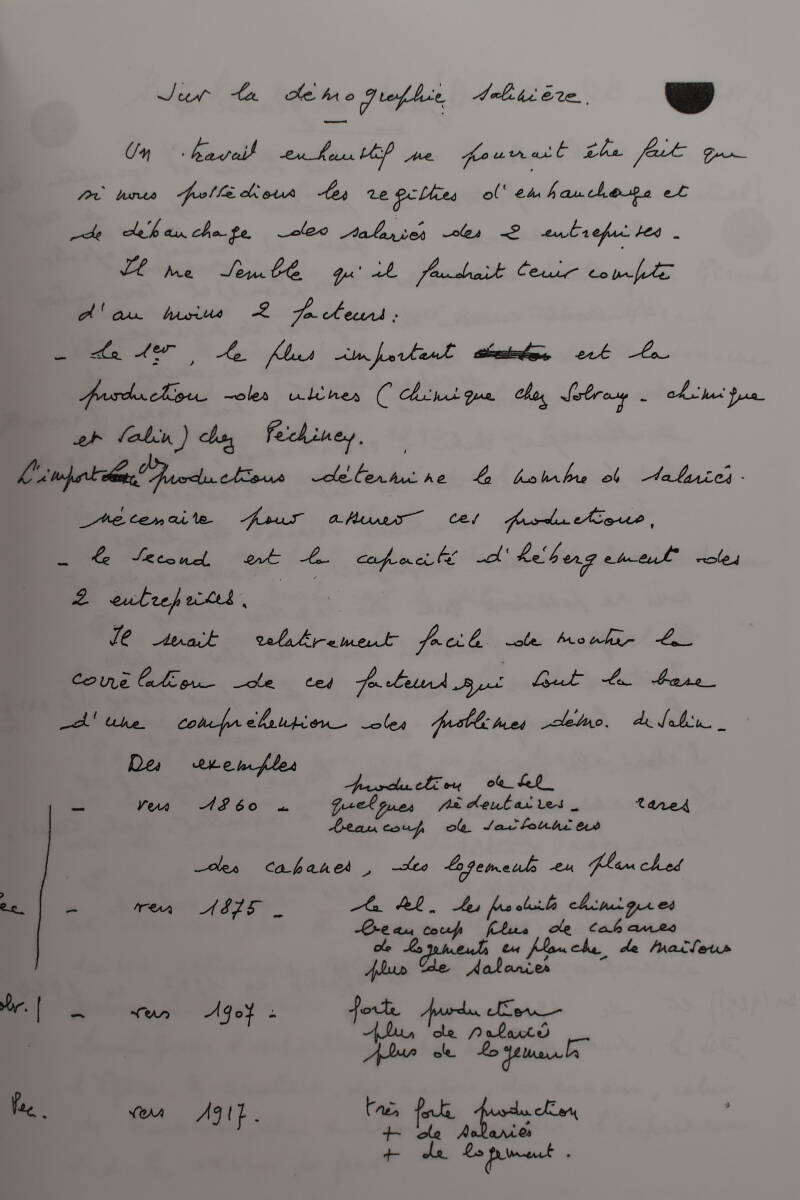 Sur la démographie salinière.
Un travail exhaustif ne pourrait être fait que
si nous possédions les registres d'embauchage et
de débauchage des salariés des 2 entreprises.
Il me semble qu'il faudrait tenir compte
d'au moins 2 facteurs :
- Le 1er, le plus important est la
production des usines (chimique chez Solvay - chimique
et Salin) chez Péchiney.
L'import des productions détermine le nombre de salariés.
nécessaire pour assurer ces productions.
- le second est la capacité d'hébergement des
2 entreprises.
Il serait relativement facile de montrer la
corrélation de ces facteurs qui sont la base
d'une compréhension des problèmes démo. de Salin -
Des exemples
production de sel
- vers 1860 - quelques sédentaires - rares
beaucoup de saisonniers
des cabanes, des logements en planches
Pec - vers 1875 - le sel - les produits chimiques
beaucoup plus de cabanes
de logements en planche, de maisons
plus de salariés
Solv. - vers 1907 - forte production
plus de salariés
plus de logements
Pec. vers 1917. très forte production
+ de salariés
+ de logement.